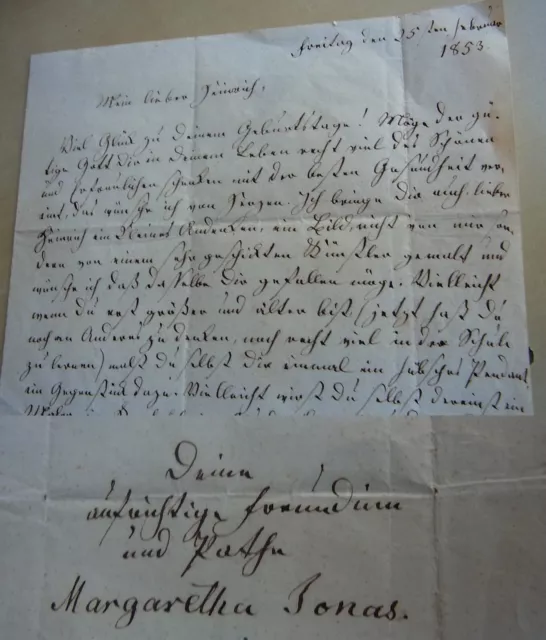 Freitag den 25ten Februar
1853.
Mein lieber Heinrich,
Viel Glück zu deinem Geburtstage! Möge der gü-
tige Gott dir in deinem Leben recht viel des Schönen
und Erfreulichen schenken mit der besten Gesundheit ver-
eint, das wünsche ich von Herzen. Ich bringe Dir auch, lieber
Heinrich ein kleines Andenken, ein Bild, nicht von mir, son
dern von einem sehr geschickten Künstler gemalt und
wünsche ich daß dasselbe Dir gefallen möge. Vielleicht
wenn du erst größer und älter bist, (jetzt hast Du
noch an Anderes zu denken, noch recht viel in der Schule
zu lernen) malst du selbst dir einmal ein hübsches Pendant
ein Gegenstück dazu. Vielleicht wirst Du selbst dereinst ein
Deine
aufrichtige Freundinn
und Pathe
Margaretha Jonas.